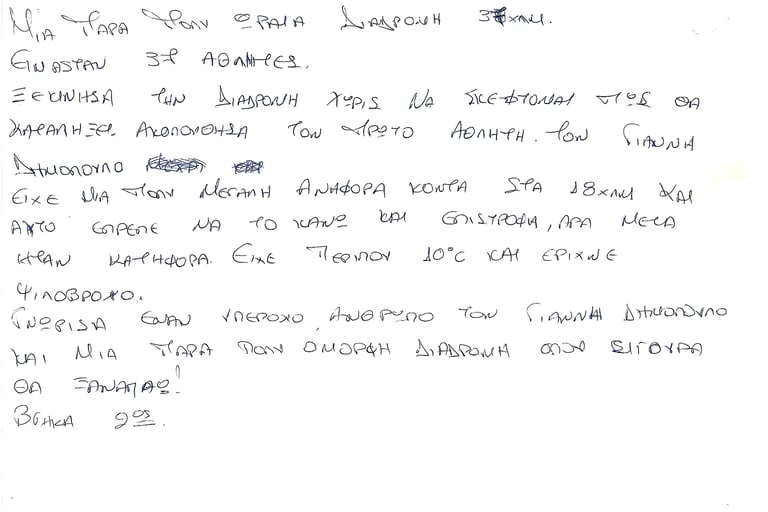 ΜΙΑ ΠΑΡΑ ΠΟΛΥ ΩΡΑΙΑ ΔΙΑΔΡΟΜΗ 37ΧΛΜ.
ΕΙΝΑΣΤΑΝ 37 ΑΘΛΗΤΕΣ.
ΞΕΚΙΝΗΣΑ ΤΗΝ ΔΙΑΔΡΟΜΗ ΧΩΡΙΣ ΝΑ ΣΚΕΦΤΟΜΑΙ ΠΩΣ ΘΑ
ΚΑΤΑΛΗΞΕΙ ΑΚΟΛΟΥΘΗΣΑ ΤΟΝ ΠΡΩΤΟ ΑΘΛΗΤΗ. ΤΟΝ ΓΙΑΝΝΗ
ΔΗΜΟΠΟΥΛΟ
ΕΙΧΕ ΜΙΑ ΠΟΛΥ ΜΕΓΑΛΗ ΑΝΗΦΟΡΑ ΚΟΝΤΑ ΣΤΑ 18ΧΛΜ ΚΑΙ
ΑΥΤΟ ΕΠΡΕΠΕ ΝΑ ΤΟ ΚΑΝΩ ΚΑΙ ΕΠΙΣΤΡΟΦΗ, ΑΡΑ ΜΕΤΑ
ΗΤΑΝ ΚΑΤΗΦΟΡΑ. ΕΙΧΕ ΠΕΡΙΠΟΥ 10°C ΚΑΙ ΕΡΙΧΝΕ
ΨΙΛΟΒΡΟΧΟ.
ΓΝΩΡΙΣΑ ΕΝΑΝ ΥΠΕΡΟΧΟ ΑΝΘΡΩΠΟ ΤΟΝ ΓΙΑΝΝΗ ΔΗΜΟΠΟΥΛΟ
ΚΑΙ ΜΙΑ ΠΑΡΑ ΠΟΛΥ ΟΜΟΡΦΗ ΔΙΑΔΡΟΜΗ ΟΠΟΥ ΣΙΓΟΥΡΑ
ΘΑ ΞΑΝΑΠΑΩ!
ΒΓΗΚΑ 2ος.